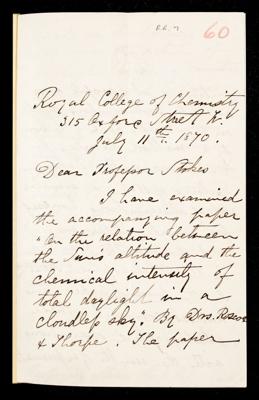 R.R. 7
60
Royal College of Chemistry
315 Oxford Street W.
July 11th. 1870.
Dear Professor Stokes
I have examined
the accompanying paper
"On the relation between
the Sun's altitude and the
chemical intensity of
total daylight in a
cloudless sky". By Drs. Roscoe
& Thorpe. The paper